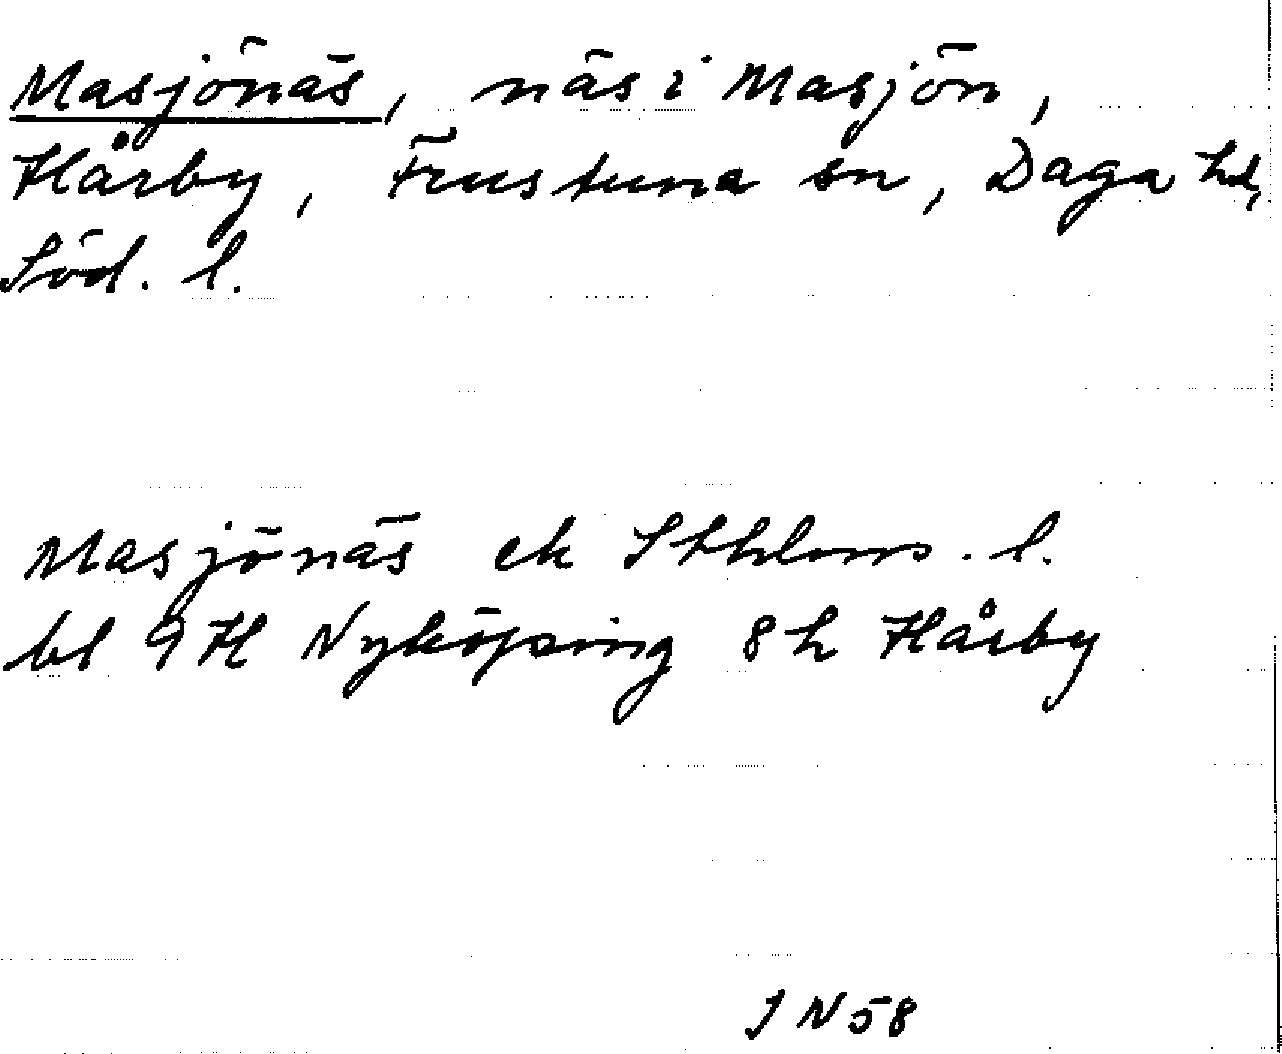 Masjönäs, näs i Masjön,
Hårby, Frustuna sn, Daga hd,
Söd. l.
Masjönäs ek Sthlms. l.
bl 9H Nyköping 8h Hårby
JN58